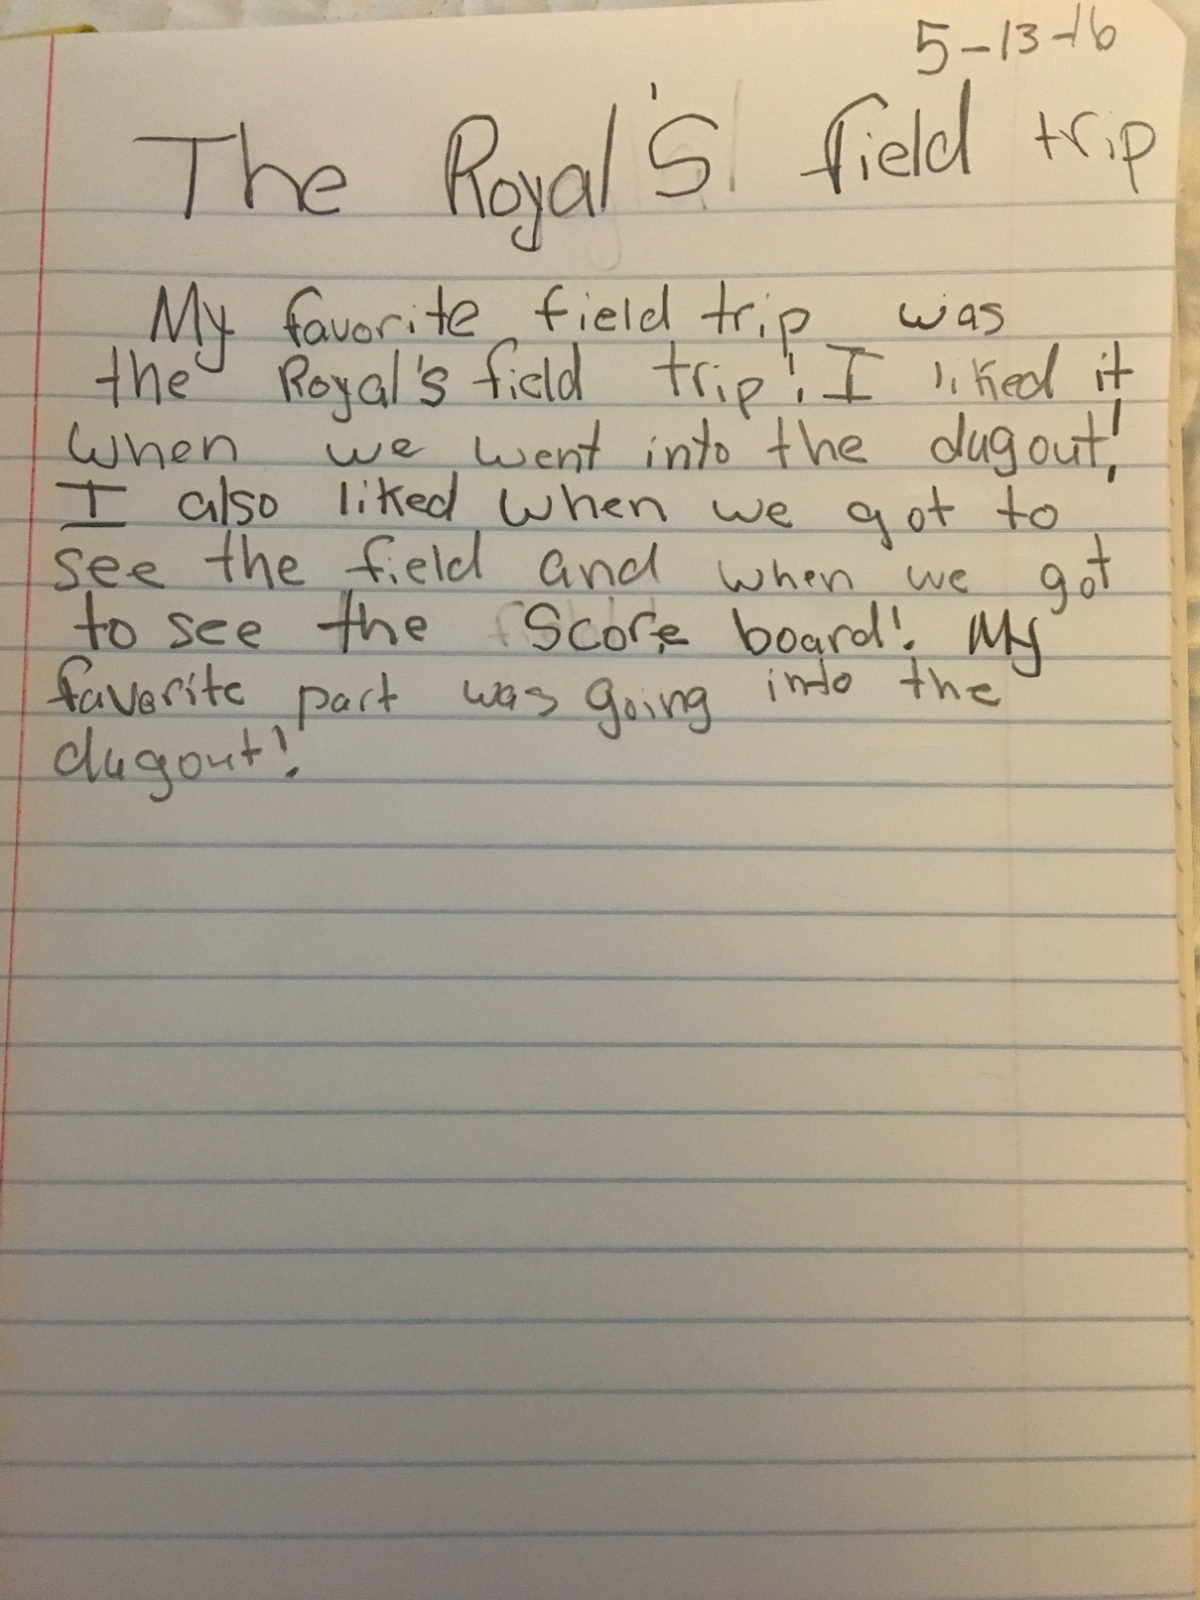 5-13-16
The Royal's field trip
My favorite field trip was
the Royal's field trip! I liked it
when we went into the dugout!
I also liked when we got to
see the field and when we got
to see the Score board! My
favorite part was going into the
dugout!